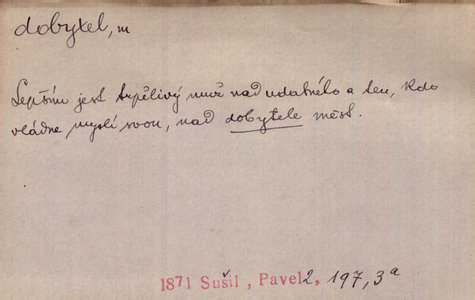 dobytel, m
Lepším jest trpělivý muž nad udatného a ten, kdo
vládne myslí svou, nad dobytele měst.
1871 Sušil, Pavel 2, 197, 3a